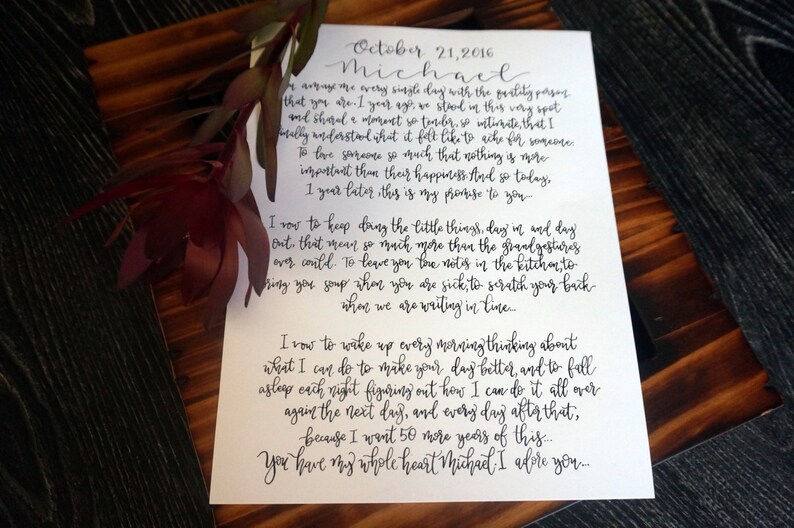 October 21, 2016
Michael
amaze me every single day with the quality person
that you are. 1 year ago, we stood in this very spot
and shared a moment so tender, so intimate, that I
finally understood what it felt like to ache for someone.
To love someone so much that nothing is more
important than their happiness. And so today,
1 year later, this is my promise to you...
I vow to keep doing the little things, day in and day
out, that mean so much more than the grand gestures
ever could. To leave you love notes in the kitchen, to
bring you soup when you are sick, to scratch your back
when we are waiting in line...
I vow to wake up every morning thinking about
what I can do to make your day better, and to fall
asleep each night figuring out how I can do it all over
again the next day, and every day after that,
because I want 50 more years of this...
You have my whole heart Michael I adore you...